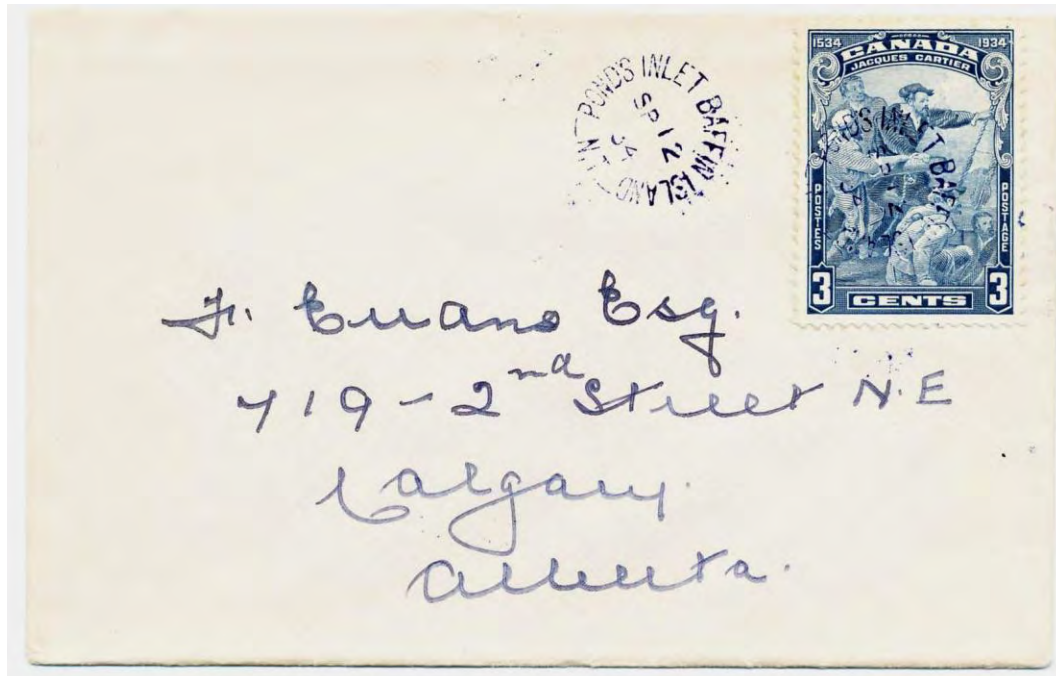 POND'S INLET BAFFIN ISLAND
SP 12
34
1534 CANADA 1934
JACQUES CARTIER
POSTES POSTAGE
3 CENTS 3
POND'S INLET BAFF
Esq.
719-2nd Street N.E
Calgary.
Alberta.